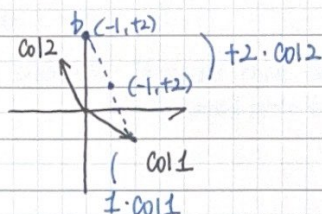 b (-1,+2)
col2
) +2·col2
(-1,+2)
col1
(
1·col1